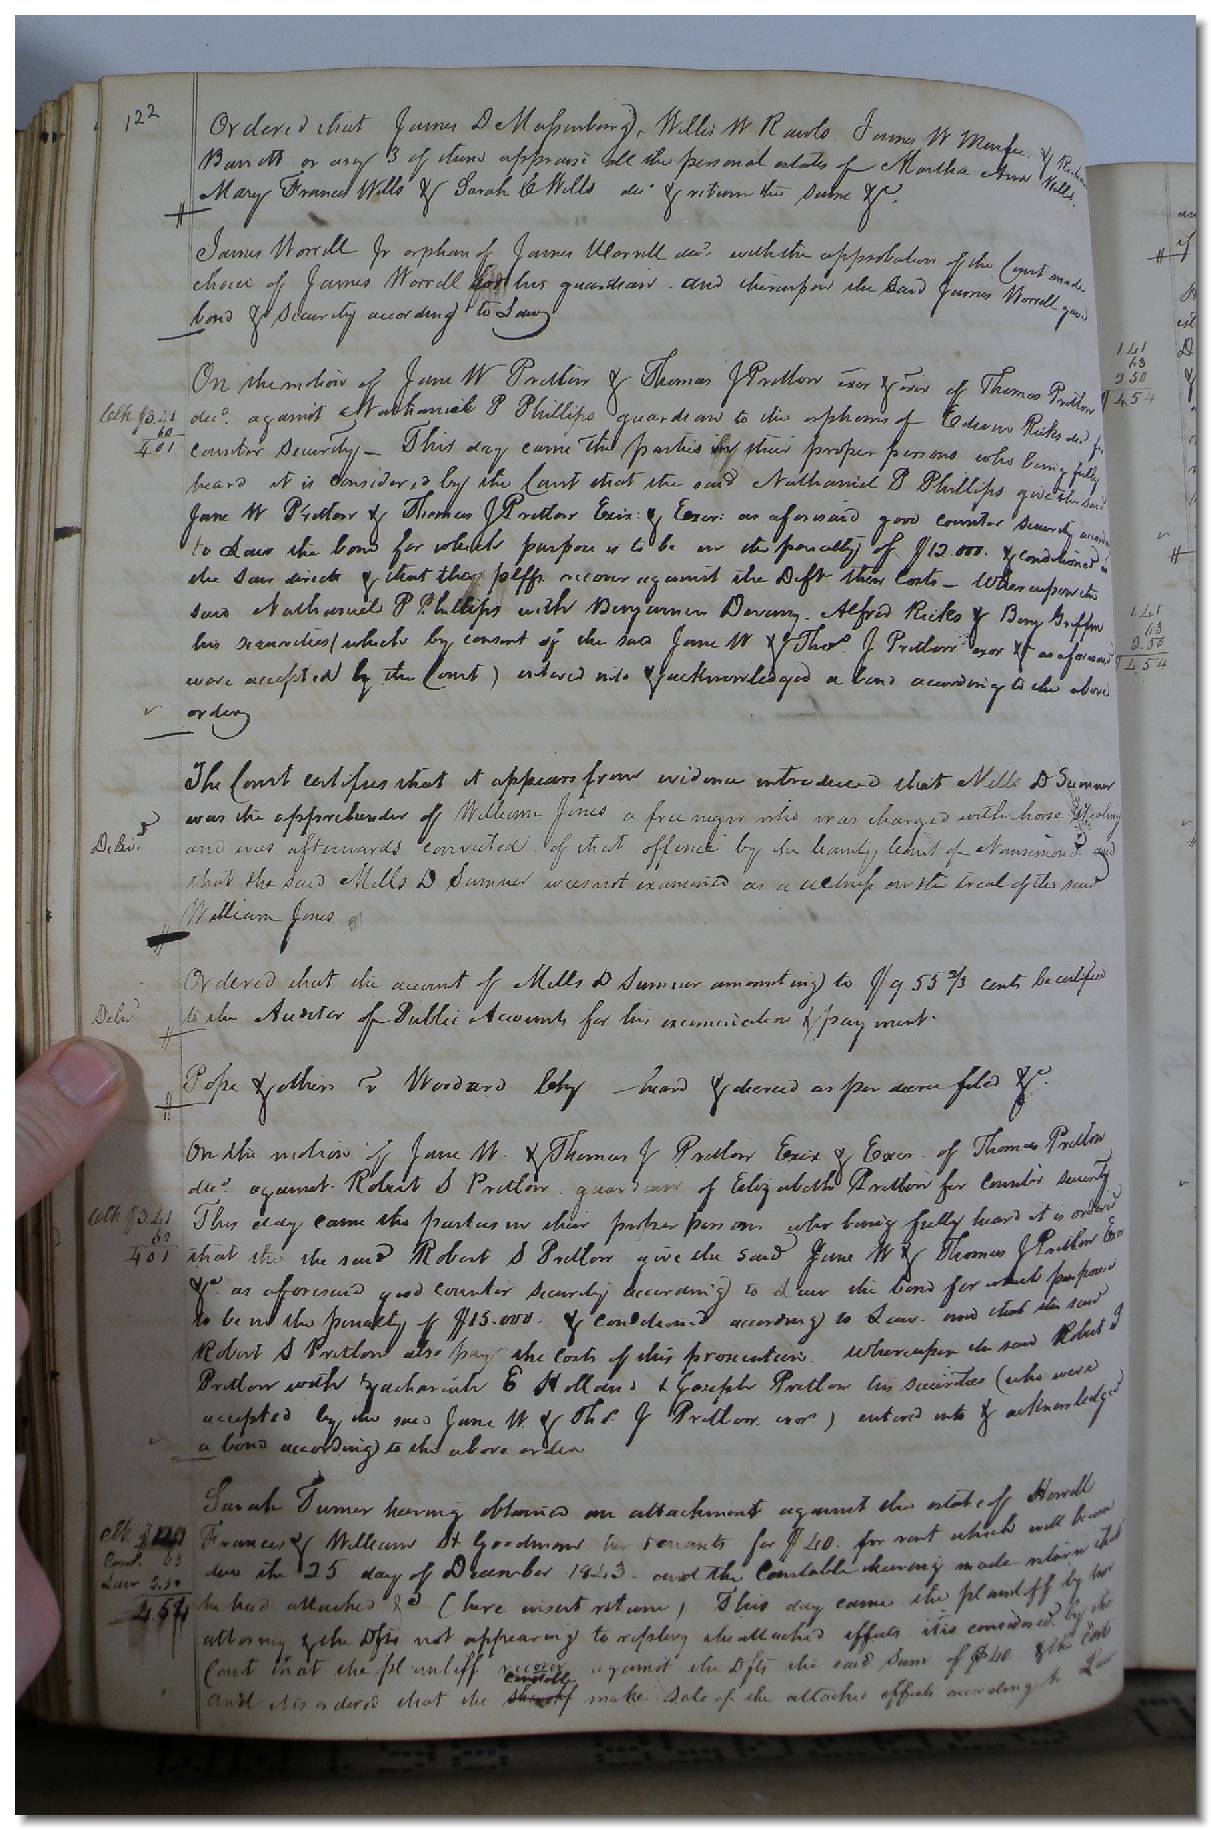 122
Ordered that James D Massenburg, Willis W Rawls James W Murfee &
Barrett or any 3 of them appraise all the personal estates of Martha Ann Wills,
Mary Frances Wills & Sarah E Wills decd & return the same &c.
James Worrell Jr orphan of James Worrell decd with the approbation of the Court made
choice of James Worrell for his guardian and thereupon the said James Worrell gave
bond & security according to Law
On the motion of Jane W Pretlow & Thomas J Pretlow exor & exor of Thomas Pretlow
Clk $3.41 decd. against Nathaniel P Phillips guardian to the orphans of Edwin Ricks decd for
60
4 01 counter security – This day came the parties by their proper persons who being fully
heard it is considered by the Court that the said Nathaniel P Phillips give the said
Jane W Pretlow & Thomas J Pretlow Exix & Exor: as aforesaid good counter security according
to Law the bond for which purpose is to be in the penalty of $12.000. & conditioned as
the Law directs & that the plffs recover against the Deft their Costs – Whereupon the
said Nathaniel P Phillips with Benjamin Devany, Alfred Ricks & Benj Griffin
his securities (which by consent of the said Jane W & Thos. J Pretlow exor & as aforesaid
were accepted by the Court) entered into & acknowledged a bond according to the above
order
The Court certifies that it appears from evidence introduced that Mills D Sumner
was the apprehender of William Jones a free negro who was charged with horse stealing
Delivd and was afterwards convicted of that offence by the County Court of Nansemond and
that the said Mills D Sumner was not examined as a witness on the trial of the said
William Jones
Ordered that the account of Mills D Sumner amounting to $9.55 2/3 cents be certified
Delivd to the Auditor of Public Accounts for his examination & payment.
Pope & others v Woodard Chy heard & decreed as per decree filed &c.
On the motion of Jane W. & Thomas J Pretlow Exix & Exor of Thomas Pretlow
decd. against Robert S Pretlow guardian of Elizabeth Pretlow for counter security
Clk $3.41 This day came the parties in their proper persons who being fully heard it is ordered
60
4 01 that the the said Robert S Pretlow give the said Jane W & Thomas J Pretlow Exor
&c as aforesaid good counter security according to Law the bond for which purpose
to be in the penalty of $15.000. & conditioned according to Law and that the said
Robert S Pretlow also pay the costs of this prosecution. Whereupon the said Robert S
Pretlow with Zachariah E Holland & Joseph Pretlow his securities (who were
accepted by the said Jane W. & Thos. J Pretlow exor.) entered into & acknowledged
a bond according to the above order
Sarah Turner having obtained an attachment against the estate of Howell
Clk Frances & William H Goodman her tenants for $40. for rent which will become
Const. 63 due the 25 day of December 1843. and the Constable having made return that
Law 2.50
4.54 he had attached &c (here insert return) This day came the plaintiff by her
attorney & the Dfts not appearing to replevy the attached effects it is considered by the
Court that the plaintiff recover against the Dfts the said Sum of $40. & the costs
and it is ordered that the constable make sale of the attached effects according to Law
141
63
2 50
4 54
1.41
63
2.50
4.54